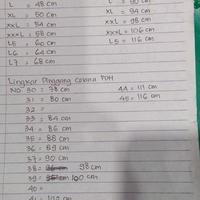 L = 48 cm L = 90 cm
XL = 50 cm XL = 94 cm
XXL = 54 cm XXL = 98 cm
XXXL = 58 cm XXXL = 106 cm
L5 = 60 cm L5 = 116 cm
L6 = 64 cm
L7 = 68 cm
Lingkar Pinggang Celana PDH
NO 30 = 78 cm 44 = 111 cm
31 = 80 cm 45 = 116 cm
32 =
33 = 84 cm
34 = 86 cm
35 = 88 cm
36 = 89 cm
37 = 90 cm
38 = 98 cm
39 = 100 cm
40 =
41 =